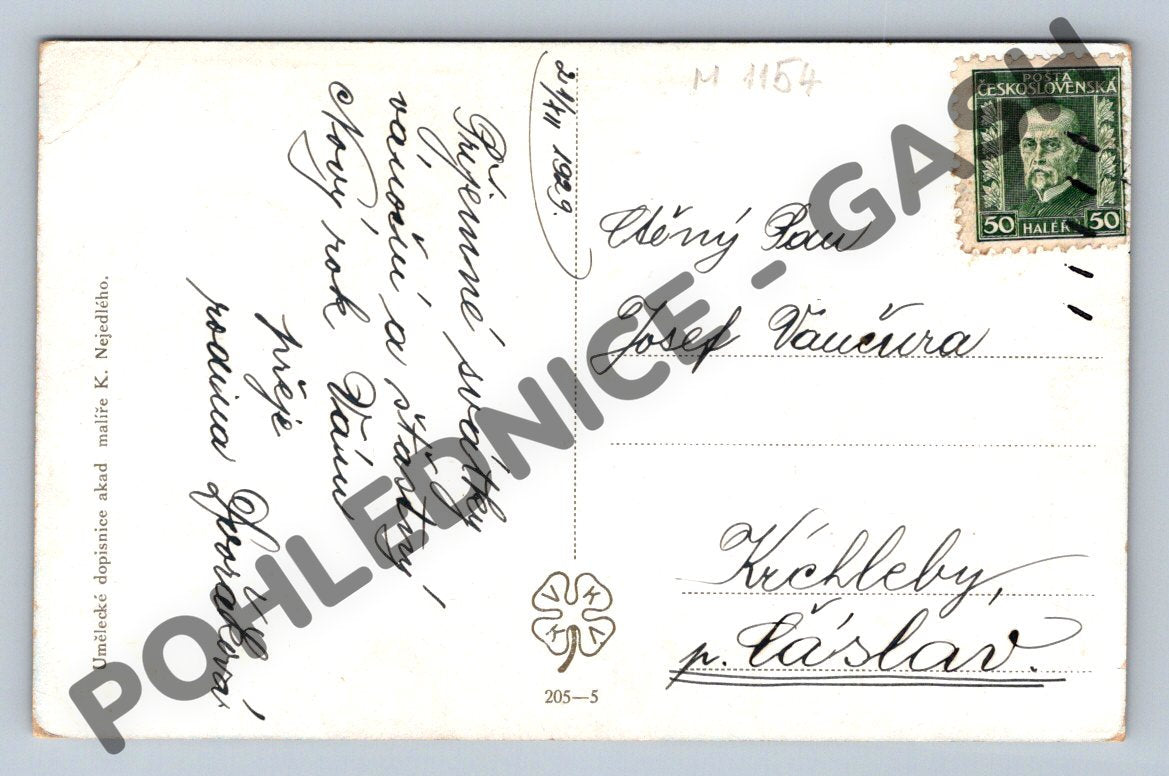 21/XII 1929.
Příjemné svátky
vánoční a šťastný
Nový rok Vám
přeje
rodina
Umělecké dopisnice akad malíře K. Nejedlého.
M 1154
POŠTA
ČESKOSLOVENSKÁ
50 HALÉŘŮ 50
Ctěný Pan
Josef Vančura
Krchleby,
p. Čáslav.
V K K V
205—5
POHLEDNICE - GASH